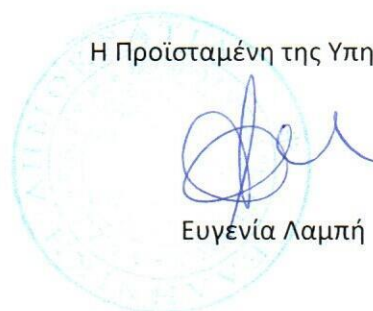 Η Προϊσταμένη της Υπη
Ευγενία Λαμπή